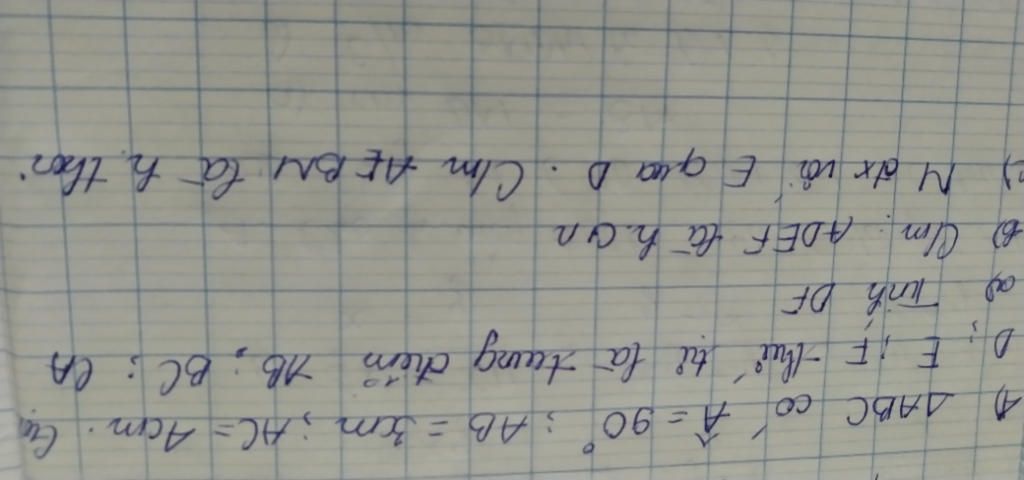 1) ΔABC có Â = 90°; AB = 3cm; AC = 4cm. Gọi
D; E; F thứ tự là trung điểm AB; BC; CA
a) Tính DF
b) C/m: ADEF là h.c.n
c) N đx với E qua D. C/m AEBN là h.thoi.